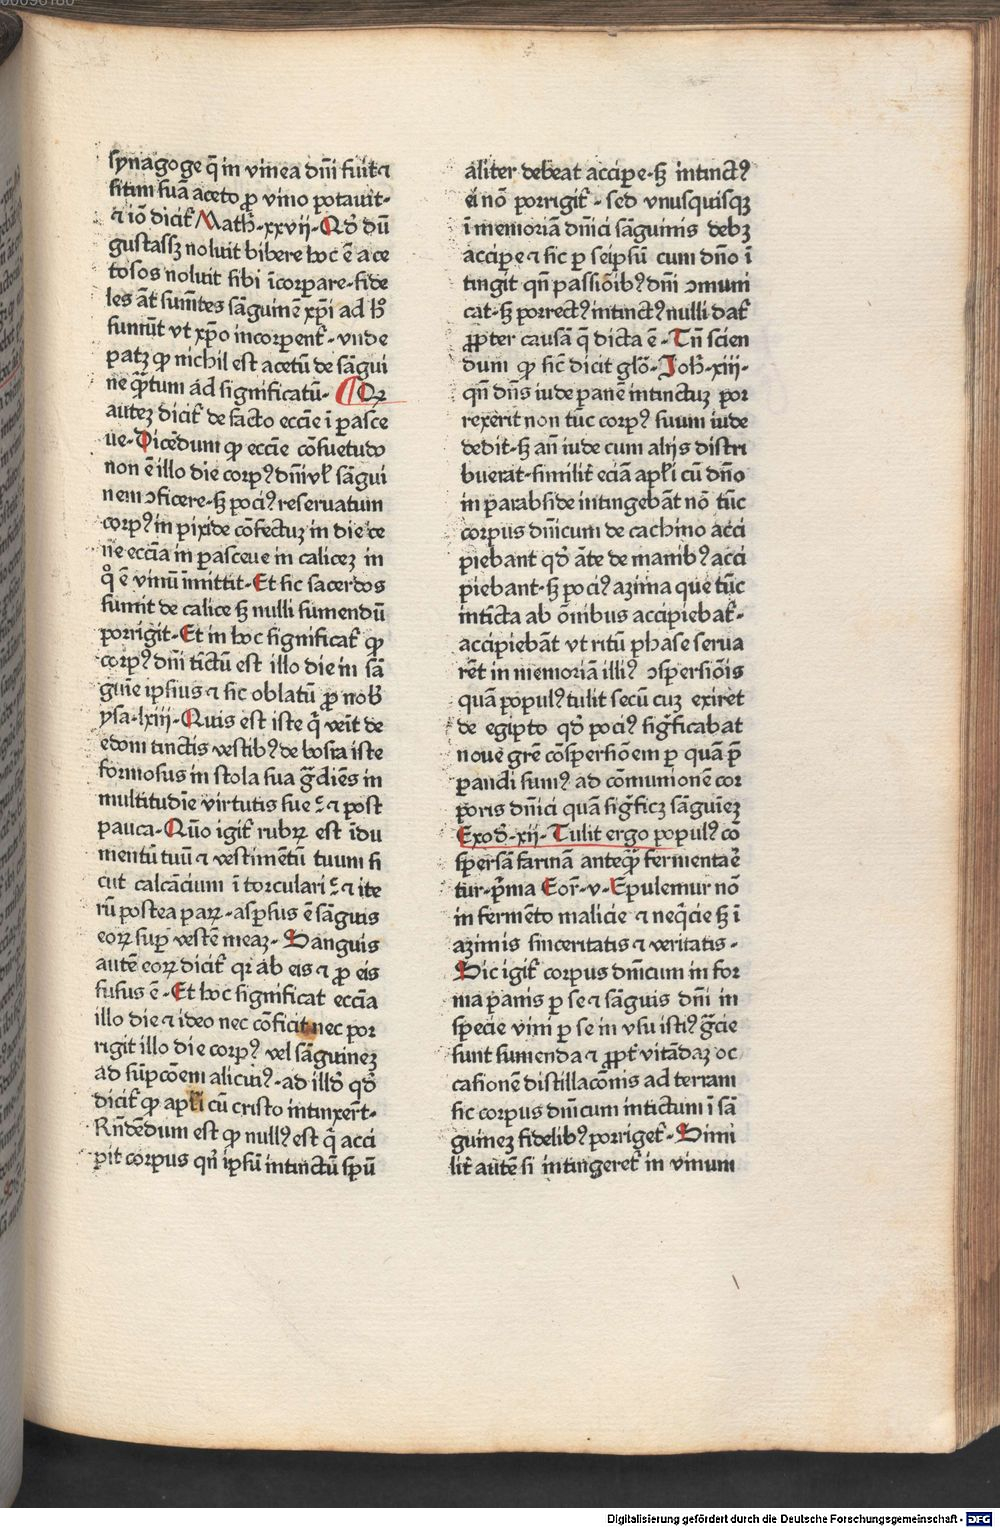 synagoge q̄ in vinea dn̄i fuit ⁊
sitim suā aceto ꝑ vino potauit·
⁊ iō dicit᷑ Math̄·xxvij·Qd̄ dū
gustassꝫ noluit bibere hoc ē ace
tosos noluit sibi īcorpare·fide
les āt sum̄tes sāguinē xp̄i ad h̄°
sumūt vt xp̄o incorpent᷑·vnde
patꝫ ꝙ nichil est acetū de sāgui
ne q̄ꝫtum ad significatū· ¶Qꝛ
autez dicit᷑ de facto eccīe ī pasce
ue·Dicēdum ꝙ eccīe cōsuetudo
non ē illo die corpꝰ dn̄i vl̄ sāgui
nem ꝯficere·sꝫ pociꝰ reseruatum
corpꝰ in pixide cōfectuꝫ in die ce
ne eccīa in pasceue in caliceꝫ in
q° ē vinū īmittit·Et sic sacerdos
sumit de calice sꝫ nulli sumendū
porrigit·Et in hoc significat᷑ ꝙ
corpꝰ dn̄i tīctū est illo die in sā
guīe ipsius ⁊ sic oblatū ꝓ nob̄
ysa·lxiij·Quis est iste q̄ veīt de
edom tinctis vestibꝰ de bosra iste
formosus in stola sua ḡdiēs in
multitudīe virtutis sue ꝛ̄ ⁊ post
pauca·Qūo igit᷑ rubꝝ est īdu
mentū tuū ⁊ vestimētū tuum si
cut calcācium ī torculari ꝛ̄ ⁊ ite
rū postea paꝝ·asp̄sus ē sāguis
eoꝝ sup̄ vestē meaꝫ·Sanguis
autē eoꝝ dicit᷑ qꝛ ab eis ⁊ ꝓ eis
fusus ē·Et hoc significat eccīa
illo die ⁊ ideo nec cōficit nec por
rigit illo die corpꝰ vel sāguineꝫ
ad sūpcōem alicuiꝰ·ad illd̄ qd̄
dicit᷑ ꝙ apl̄i cū cristo intinxer̄t·
Rn̄dēdum est ꝙ nullꝰ est q̄ acci
pit corpus qn̄ ipsū intinctū sp̄ū
aliter debeat accipe·sꝫ intinctꝰ
ei nō porrigit᷑·sed vnusquisqꝫ
ī memoriā dn̄ici sāguinis debꝫ
accipe ⁊ sic p seipsū cum dn̄o ī
tingit qn̄ passiōibꝰ dn̄i ꝯmuni
cat·sꝫ porrectꝰ intinctꝰ nulli dat᷑
ꝓpter causā q̄ dicta ē·Tn̄ scien
dum ꝙ sic dicit glō·Joh̄·xiij·
qn̄ dn̄s iude panē intinctuꝫ por
rexerit non tūc corpꝰ suum iude
dedit·sꝫ an̄ iude cum alijs distri
buerat·similit᷑ eciā apl̄i cū dn̄o
in parabside intingebāt nō tūc
corpus dn̄icum de cachino acci
piebant qd̄ āte de manibꝰ acci
piebant·sꝫ pociꝰ azima que tūc
intīcta ab ōnibus accipiebāt᷑·
accipiebāt vt ritū phase serua
rēt in memoriā illiꝰ ꝯspersiōis
quā populꝰ tulit secū cuꝫ exiret
de egipto qd̄ pociꝰ sig̃ficabat
noue grē cōspersiōem p quā p̄
pandi sumꝰ ad cōmunionē cor
poris dn̄ici quā sig̃ficꝫ sāguīeꝫ
Exod̄·xij·Tulit ergo populꝰ cō
spersā farinā anteq̄ꝫ fermentaē
tur·p̄ma Cor̄·v·Epulemur nō
in fermēto malicie ⁊ neq̄cie sꝫ ī
azimis sinceritatis ⁊ veritatis·
Hic igit᷑ corpus dn̄icum in for
ma panis p se ⁊ sāguis dn̄i in
specie vini p se in vsu istiꝰ g̃cie
sunt sumenda ⁊ ꝓpt᷑ vitādaꝫ oc
casionē distillacōnis ad terram
sic corpus dn̄icum intictum ī sā
guineꝫ fidelibꝰ porriget᷑·Simi
lit᷑ autē si intingeret᷑ in vinum
Digitalisierung gefördert durch die Deutsche Forschungsgemeinschaft - DFG